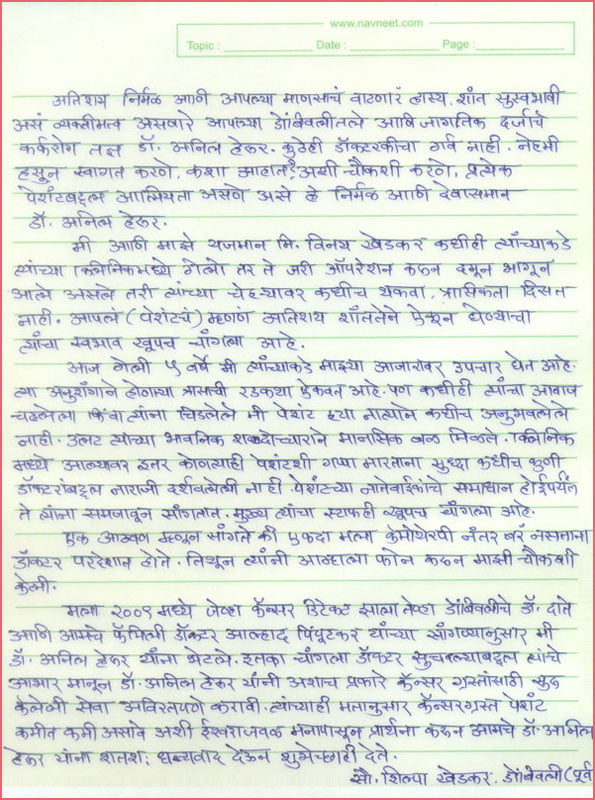 www.navneet.com
Topic : Date : Page :
अतिशय निर्मळ आणि आपल्या माणसाचं वाटणारं हास्य. शांत सुस्वभावी
असं व्यक्तीमत्व असणारे आपल्या डोंबिवलीतले आणि जागतिक दर्जाचे
कर्करोग तज्ञ डॉ. अनिल हेरूर. कुठेही डॉक्टरकीचा गर्व नाही. नेहमी
हसून स्वागत करणे, कशा आहात? अशी चौकशी करणे, प्रत्येक
पेशंटबद्दल आत्मियता असणे असे हे निर्मळ आणि देवासमान
डॉ. अनिल हेरूर.
मी आणि माझे यजमान मि. विनय खेडकर कधीही त्यांच्याकडे
त्यांच्या क्लिनिकमध्ये गेलो तर ते जरी ऑपरेशन करून दमून भागून
आले असले तरी त्यांच्या चेहऱ्यावर कधीच थकवा, त्रासिकता दिसत
नाही. आपलं (पेशंटचं) म्हणणं अतिशय शांततेने ऐकून घेण्याचा
त्यांचा स्वभाव खूपच चांगला आहे.
आज गेली ५ वर्षे मी त्यांच्याकडे माझ्या आजारावर उपचार घेत आहे.
त्या अनुशंगाने होणाऱ्या त्रासाची रडकथा ऐकवत आहे. पण कधीही त्यांचा आवाज
चढलेला किंवा त्यांना चिडलेले मी पेशंट ह्या नात्याने कधीच अनुभवलेले
नाही. उलट त्यांच्या भावनिक शब्दोच्चाराने मानसिक बळ मिळले. क्लिनिक
मध्ये आल्यावर इतर कोणत्याही पेशंटशी गप्पा मारताना सुध्दा कधीच कुणी
डॉक्टरांबद्दल नाराजी दर्शवलेली नाही पेशंटच्या नातेवाईकांचे समाधान होईपर्यंत
ते त्यांना समजावून सांगतात. मुख्य त्यांचा स्टाफही खूपच चांगला आहे.
एक आठवण म्हणून सांगते की एकदा मला केमोथेरपी नंतर बरं नसताना
डॉक्टर परदेशात होते. तिथून त्यांनी आम्हाला फोन करून माझी चौकशी
केली.
मला २००९ मध्ये जेव्हा कॅन्सर डिटेक्ट झाला तेव्हा डोंबिवलीचे डॉ. दाते
आणि आमचे फॅमिली डॉक्टर आल्हाद पिंपुटकर यांच्या सांगण्यानुसार मी
डॉ. अनिल हेरूर यांना भेटले. इतका चांगला डॉक्टर सुचवल्याबद्दल त्यांचे
आभार मानून डॉ. अनिल हेरूर यांनी अशाच प्रकारे कॅन्सर ग्रस्तांसाठी सुरू
केलेली सेवा अविरतपणे करावी. त्यांच्याही मतानुसार कॅन्सरग्रस्त पेशंट
कमीत कमी असावे अशी ईश्वराजवळ मनापासून प्रार्थना करून आमचे डॉ. अनिल
हेरूर यांना शतशः धन्यवाद देऊन शुभेच्छाही देते.
सौ. शिल्पा खेडकर. डोंबिवली (पूर्व